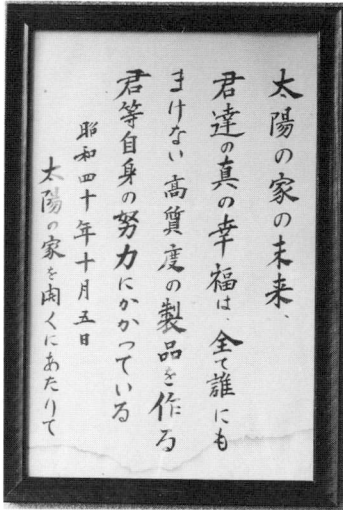 太陽の家の未来、
君達の真の幸福は、全て誰にも
まけない高質度の製品を作る
君等自身の努力にかかっている
昭和四十年十月五日
太陽の家を開くにあたりて